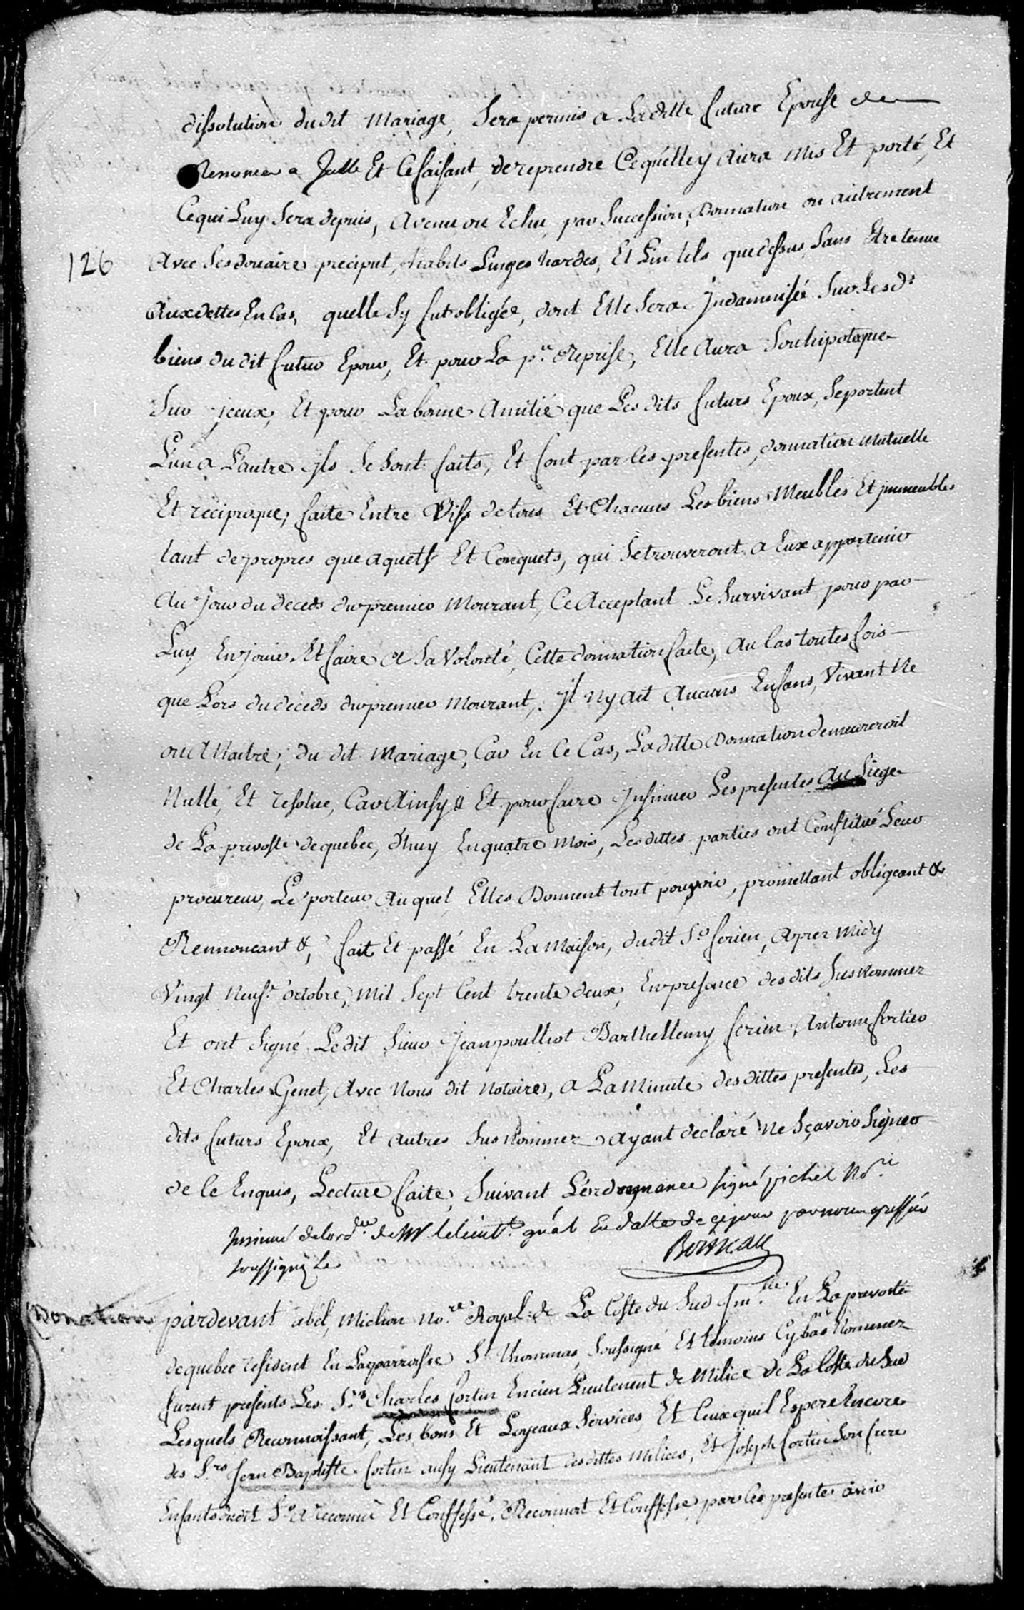 dissolution du dit Mariage, Sera permis a Laditte future Epouse de
Renoncer a Jcelle Et Ce faisant, de reprendre Ce qu'elle y Aura Mis Et porté, Et
Ce qui Luy Sera depuis, Avenu ou Echu, par Succession, Donnation ou autrement
126 Avec Ses douaire preciput, habits Linges hardes, Et Lin tels que dessus, Sans Etre tenue
Aux dettes En Cas, quelle Sy fut obligée, dont Elle Sera Jndamnisée Sur Les ds
biens du dit futur Epoux, Et pour La pnt Reprise, Elle Aura Son hipotaque
Sur jceux, Et pour La bonne Amitié que Les dits futurs Epoux, Se portent
L'un a L'autre jls Se Sont faits, Et font par Ces presentes, donnation Mutuelle
Et reciproque, faite Entre Vifs de tous Et Chacuns Les biens Meubles Et jmmeubles
tant de propres que aquets Et Conquets, qui Se trouveront, a Eux appartenir
Au Jour du deceds du premier Mourant, Ce Acceptant Le Survivant pour par
Luy En jouir Et faire a Sa Volonté, Cette donnation faite, Au Cas toutes fois
que Lors du déceds du premier Mourant, Jl N'y ait Aucuns Enfans, Vivant Né
ou A Naitre, du dit Mariage, Car En Ce Cas, La ditte Donnation demeureroit
Nulle, Et resolue, Car Ainsy & Et pour faire Jnsinuer Les presentes Au Siege
de La prevosté de quebec, d'huy En quatre Mois, Les dittes parties ont Constitué Leur
procureur, Le porteur Au quel Elles Donnent tout pouvoir, promettant obligeant &
Rennoncant &, fait Et passé En La Maison, du dit Sr ferien, Apres Midy
Vingt Neuf octobre, Mil Sept Cent trente deux, En presence des dits Sus Nommez
Et ont Signé Le dit Sieur Jean poulliot Barthellemy ferien, Antoine fortier
Et Charles Genet, Avec Nous dit Notaire, A La Minute des dittes presentes, Les
dits futurs Epoux, Et autres Sus Nommez ayant declaré Ne Sçavoir Signer
de Ce Enquis, Lecture faite, Suivant L'ordonnance Signé pichet Nore
Jnsinué de Lordce de Mr le Lieutt gnal En datte de ce jour par nous greffier
Soussigné
Boisseau
Donation pardevant abel, Michon Nore Royal de La Coste du Sud En La prevosté
de quebec resident En La parroisse St thommas, Soussigné Et temoins Cy bas Nommez
furent presents Les Srs Charles fortin Encien Lieutenent de Milice de La Coste du Sud
Lesquels Reconnoissant, Les bons Et Loyeaux Services Et Ceux quil Espere Encore
des Srs Jean Baptiste fortin aussy Lieutenant desdittes Milices, Et Joseph fortin Son frere
Enfants dudit Sr a reconnu Et Conffessé, Reconnoit Et Conffesse par Ces presentes avoir